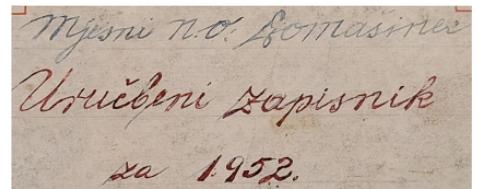 Mjesni n.o. Domašinec
Uručbeni zapisnik
za 1952.